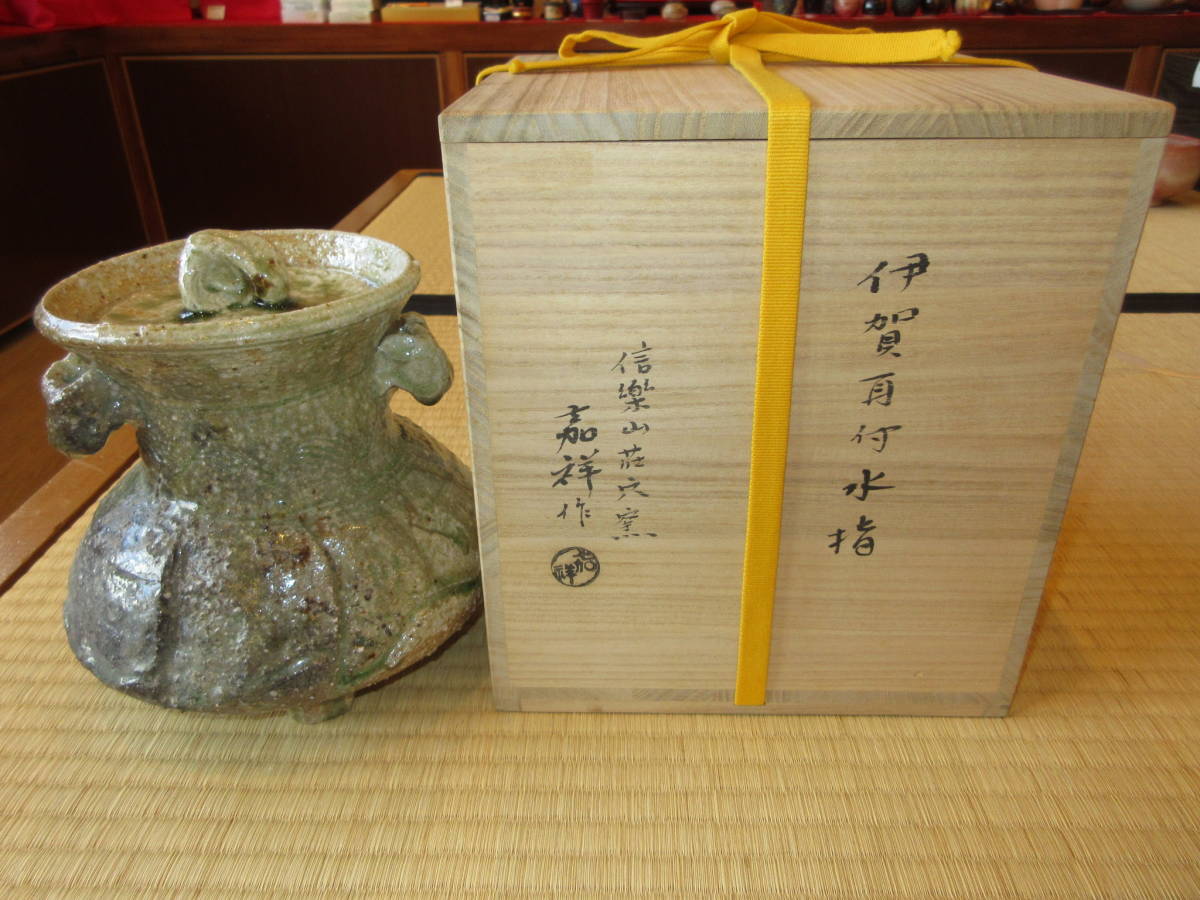 伊賀耳付水指
信樂山荘穴窯
嘉祥作
嘉祥